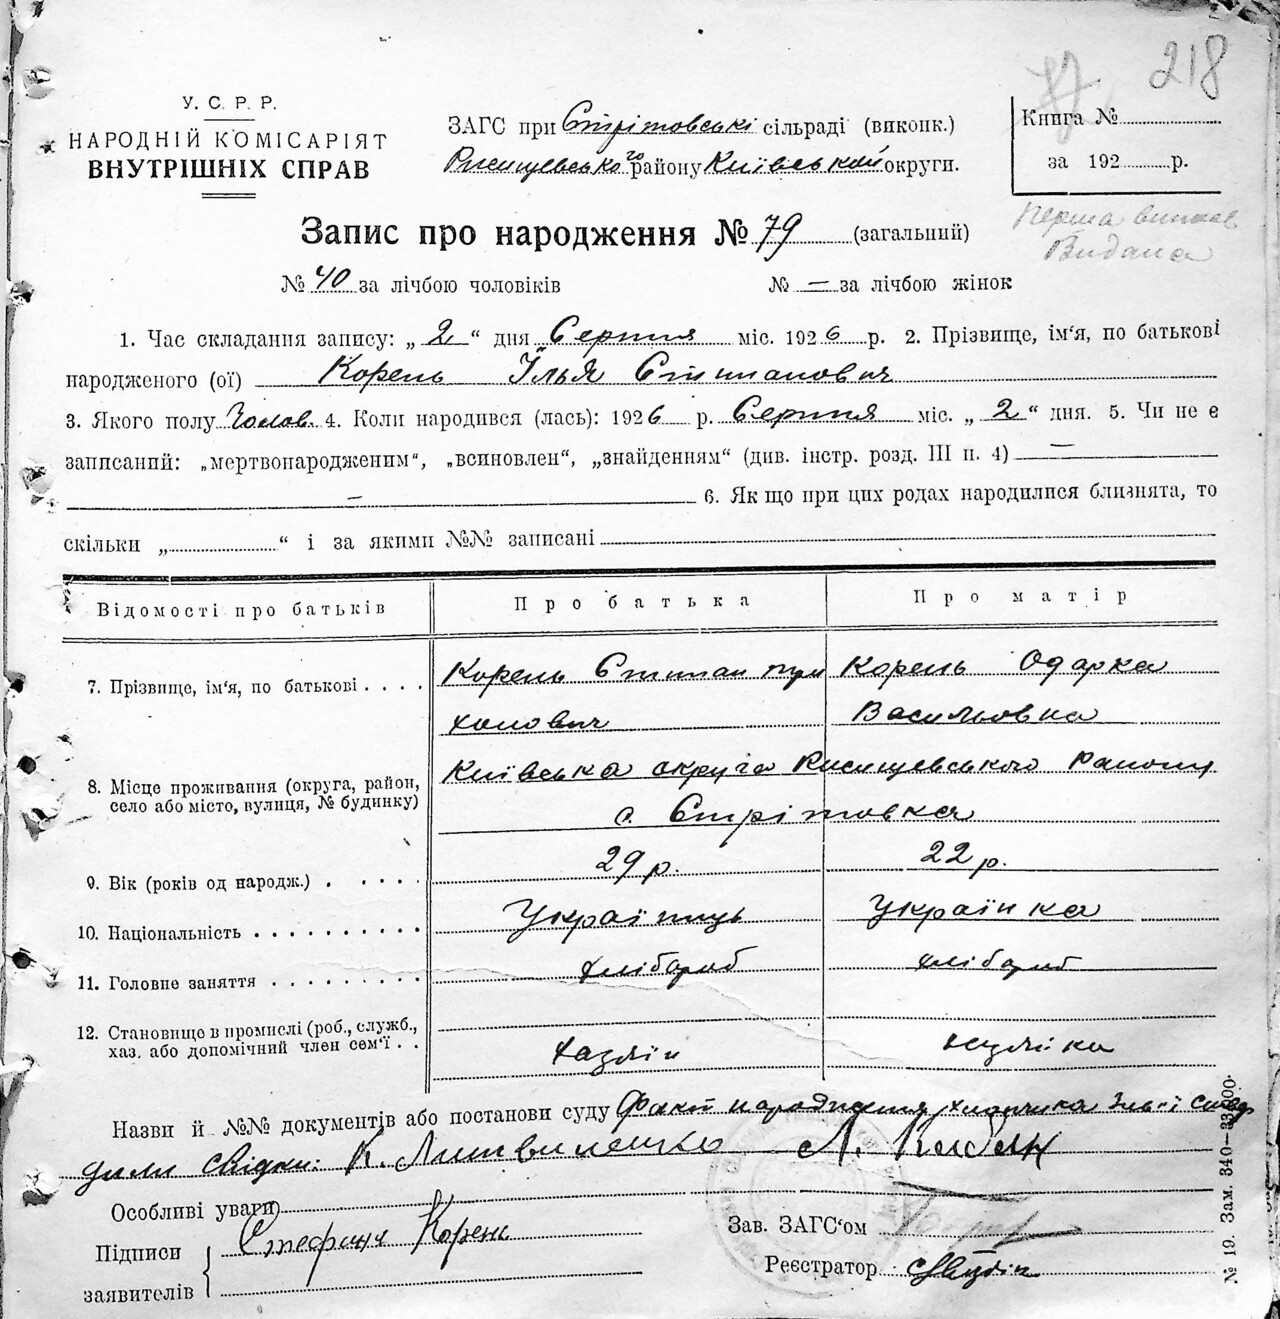 218
У. С. Р. Р.
НАРОДНІЙ КОМІСАРІЯТ
ВНУТРІШНІХ СПРАВ
ЗАГС при Стрітовські сільраді (виконк.)
Ржищевського району Київської округи.
Книга №
за 192 р.
Перша виписка
Видана
Запис про народження № 79 (загальний)
№ 40 за лічбою чоловіків № — за лічбою жінок
1. Час складання запису: „ 2 “ дня Серпня міс. 1926 р. 2. Прізвище, ім‘я, по батькові
народженого (ої) Корень Ілья Стипанович
3. Якого полу Чолов. 4. Коли народився (лась): 1926 р. Серпня міс. „ 2 “ дня. 5. Чи не є
записаний: „мертвонародженим“, „всиновлен“, „знайденням“ (див. інстр. розд. III п. 4) —
— 6. Як що при цих родах народилися близнята, то
скільки „ “ і за якими №№ записані
Відомості про батьків Про батька Про матір
7. Прізвище, ім‘я, по батькові . . . . Корень Стипан Корень Одарка
Васильовна
8. Місце проживання (округа, район, село або місто, вулиця, № будинку) Київська округа Ржищевського Району
с. Стрітовка
9. Вік (років од народж.) . . . . . 29 р. 22 р.
10. Національність . . . . . . . . . . Українець Українка
11. Головне заняття . . . . . . . . . хлібороб хлібороб
12. Становище в промислі (роб., служб.,
хаз. або допомічний член сем‘ї . . хазяїн
Назви й №№ документів або постанови суду Факт народження хлопчика Ільї Ствер
дили свідки: К. Литвиненко Л.
Особливі уваги
Підписи
заявителів
Корень
Зав. ЗАГС‘ом
Реєстратор
№ 19. Зам. 340—33000.